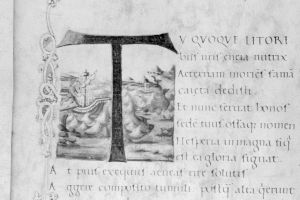 TU QUOQUE LITORI
bus nris eneia nutrix
Aeternam moriēs famā
caieta dedisti.
Et nunc servat honos
sede tuus ossaq; nomen
Hesperia in magna siq̄
est ea gloria signat.
At pius exequiis aeneas rite solutis
Aggere composito tumuli postq̄ alta q̄erunt